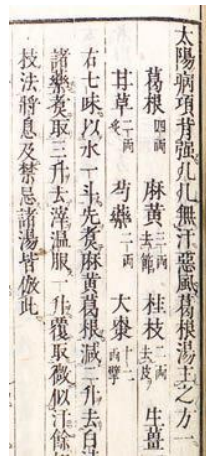 太陽病項背强几几無汗惡風葛根湯主之方一
葛根四兩 麻黃三兩去節 桂枝二兩去皮 生薑
甘草二兩炙 芍藥二兩 大棗十二枚擘
右七味以水一斗先煮麻黃葛根減二升去白沫
諸藥煮取三升去滓溫服一升覆取微似汗餘如
枝法將息及禁忌諸湯皆倣此